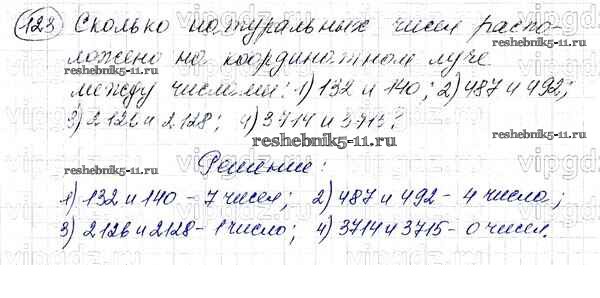 123 Сколько натуральных чисел распо-
ложено на координатном луче
между числами: 1) 132 и 140; 2) 487 и 492;
3) 2126 и 2128; 4) 3714 и 3715?
Решение:
1) 132 и 140 - 7 чисел; 2) 487 и 492 - 4 числа;
3) 2126 и 2128 - 1 число; 4) 3714 и 3715 - 0 чисел.
reshebnik5-11.ru
reshebnik5-11.ru
reshebnik5-11.ru
reshebnik5-11.ru
reshebnik5-11.ru